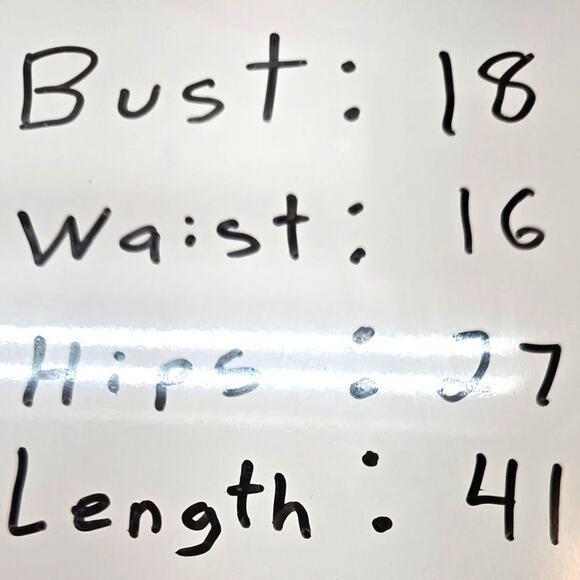 Bust: 18
Waist: 16
Hips: 27
Length: 41